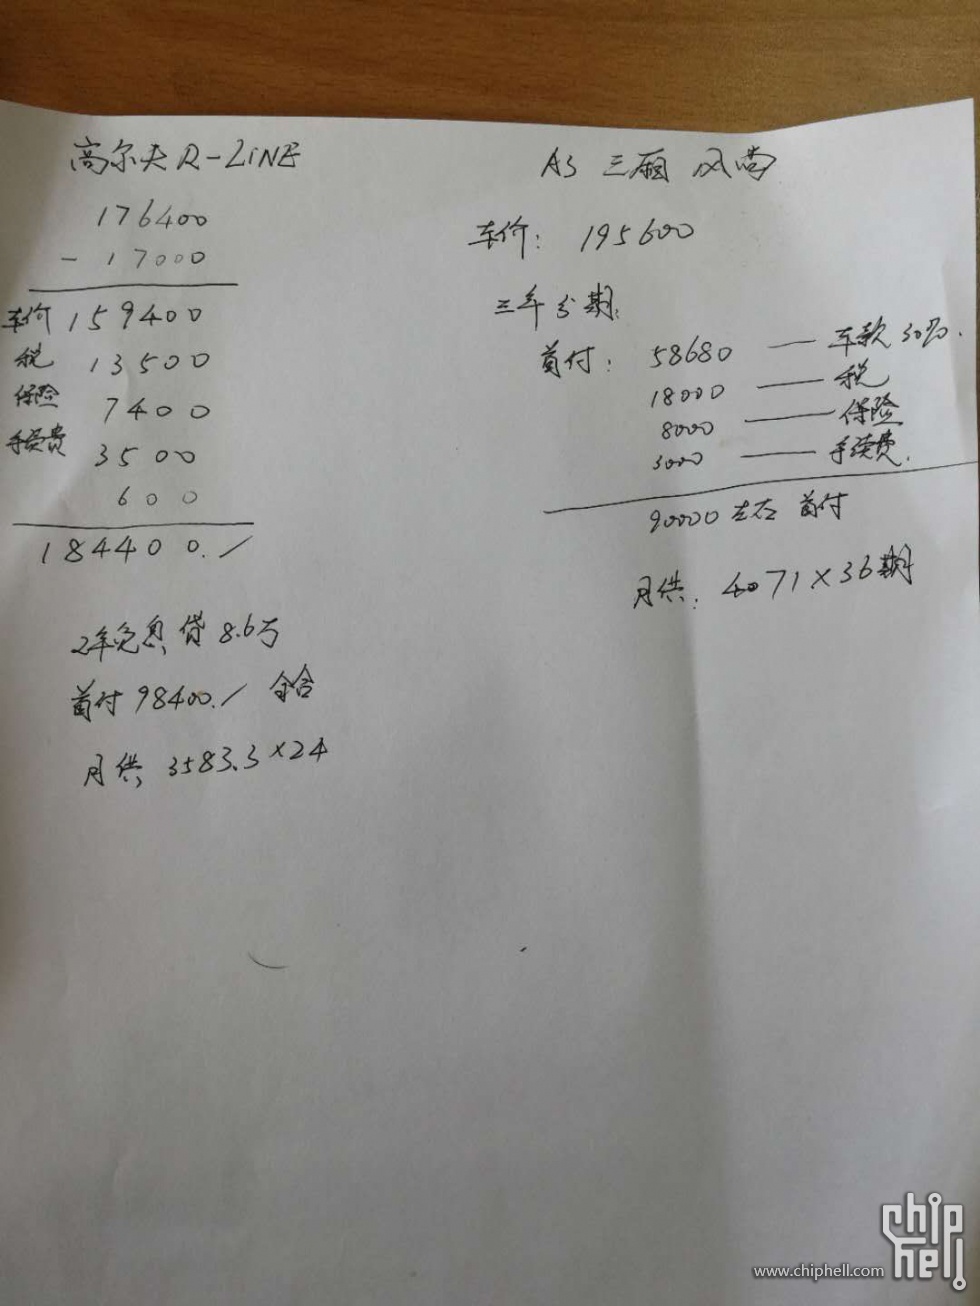 高尔夫 R-LINE
176400
- 17000
车价 159400
税 13500
保险 7400
手续费 3500
600
184400./
2年免息 贷8.6万
首付 98400./ 全含
月供, 3583.3×24
A3 三厢 风尚
车价: 195600
三年分期:
首付: 58680 — 车款30%.
18000 — 税
8000 — 保险
3000 — 手续费.
90000左右 首付
月供: 4071×36期
chip
hell
www.chiphell.com